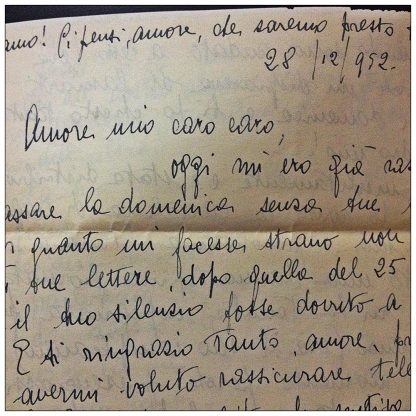 amo! Ci pensi, amore, che saremo presto
28/12/952.
Amore mio caro caro,
oggi mi ero già ras
assare la domenica senza tue
quanto mi facesse strano non
tue lettere, dopo quella del 25
il tuo silenzio fosse dovuto a
E ti ringrazio tanto, amore, per
avermi voluto rassicurare tele